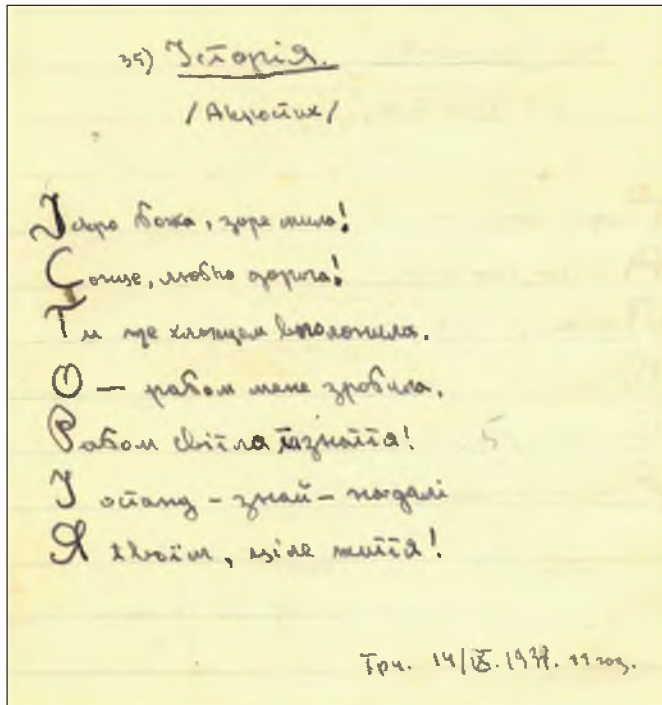 35) Історія.
/Акростих/
Іскро божа, зоре мила!
Сонце, любко дорога!
Ти ще хлопцем полонила,
О — рабом мене зробила,
Рабом світла та знаття!
І остану - знай - надалі
Я твоїм, ціле життя!
Грч. 14/IX. 1937. 11 год.